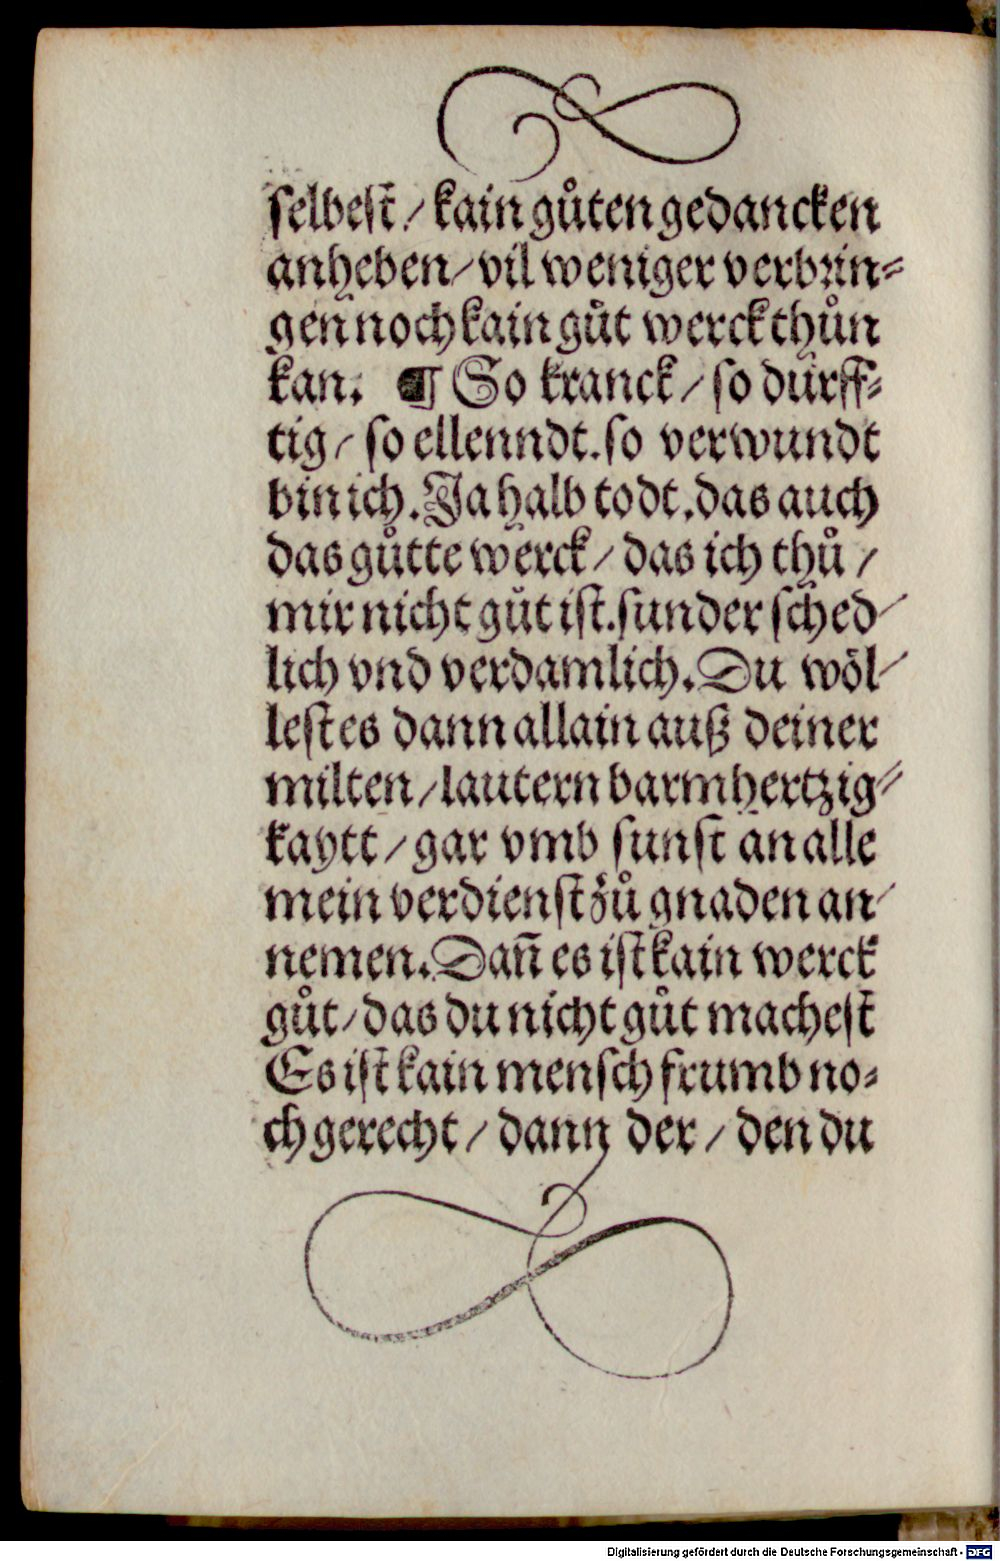 selbest / kain gůten gedancken
anheben / vil weniger verbrin⸗
gen noch kain gůt werck thůn
kan. ¶ So kranck / so dürff⸗
tig / so ellenndt. so verwundt
bin ich. Ja halb todt. das auch
das gůtte werck / das ich thů /
mir nicht gůt ist. sunder sched⸗
lich vnd verdamlich. Du wöl⸗
lest es dann allain auß deiner
milten / lautern barmhertzig⸗
kaytt / gar vmb sunst an alle
mein verdienst zů gnaden an⸗
nemen. Dañ es ist kain werck
gůt / das du nicht gůt machest
Es ist kain mensch frumb no⸗
ch gerecht / dann der / den du
Digitalisierung gefördert durch die Deutsche Forschungsgemeinschaft - DFG